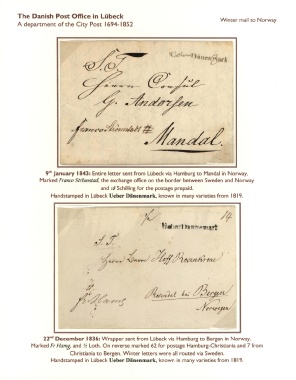 The Danish Post Office in Lübeck
Winter mail to Norway
A department of the City Post 1694-1852
Ueber Dänemark
S. T.
Herrn Consul
G. Andorsen
franco Strömstadt #
Mandal.
9th January 1843: Entire letter sent from Lübeck via Hamburg to Mandal in Norway.
Marked Franco Strömstad, the exchange office on the border between Sweden and Norway
and of Schilling for the postage prepaid.
Handstamped in Lübeck Ueber Dänemark, known in many varieties from 1819.
Ueber Dännemark
S. T.
Herrn
bei Bergen
Norwegen
fr Hamb
22nd December 1836: Wrapper sent from Lübeck via Hamburg to Bergen in Norway.
Marked Fr Hamg, and ½ Loth. On reverse marked 62 for postage Hamburg-Christiania and 7 from
Christiania to Bergen. Winter letters were all routed via Sweden.
Handstamped in Lübeck Ueber Dännemark, known in many varieties from 1819.